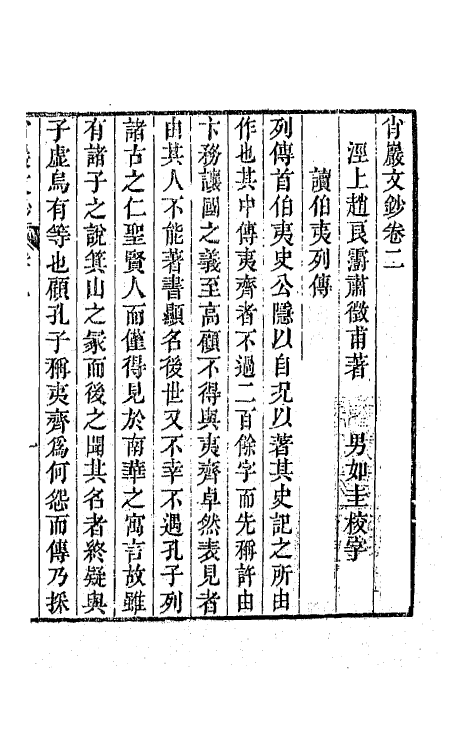 肖巖文鈔卷二
涇上趙良𩆩肅徵甫著 男如圭校字
讀伯夷列傳
列傳首伯夷史公隱以自况以著其史記之所由
作也其中傳夷齊者不過二百餘字而先稱許由
卞務讓國之義至高顧不得與夷齊卓然表見者
由其人不能著書顯名後世又不幸不遇孔子列
諸古之仁聖賢人而僅得見於南華之寓言故雖
有諸子之說箕山之冡而後之聞其名者終疑與
子虛烏有等也顧孔子稱夷齊爲何怨而傳乃採